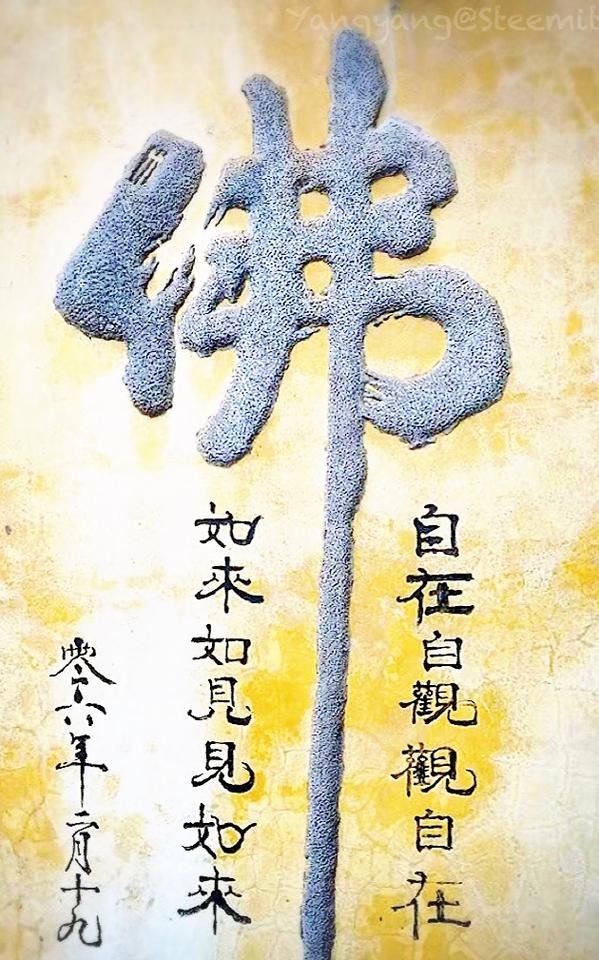 Yangyang@Steemit
佛
自在自觀觀自在
如來如見見如來
六年二月十九